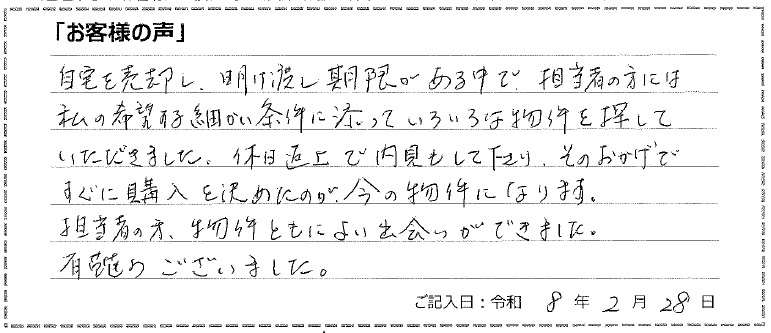 「お客様の声」
自宅を売却し、明け渡し期限がある中で、担当者の方には
私の希望する細かい条件に添っていろいろな物件を探して
いただきました。休日返上で内見もして下さり、そのおかげで
すぐに購入を決めたのが、今の物件になります。
担当者の方、物件ともによい出会いができました。
有難うございました。
ご記入日：令和 8 年 2 月 28 日